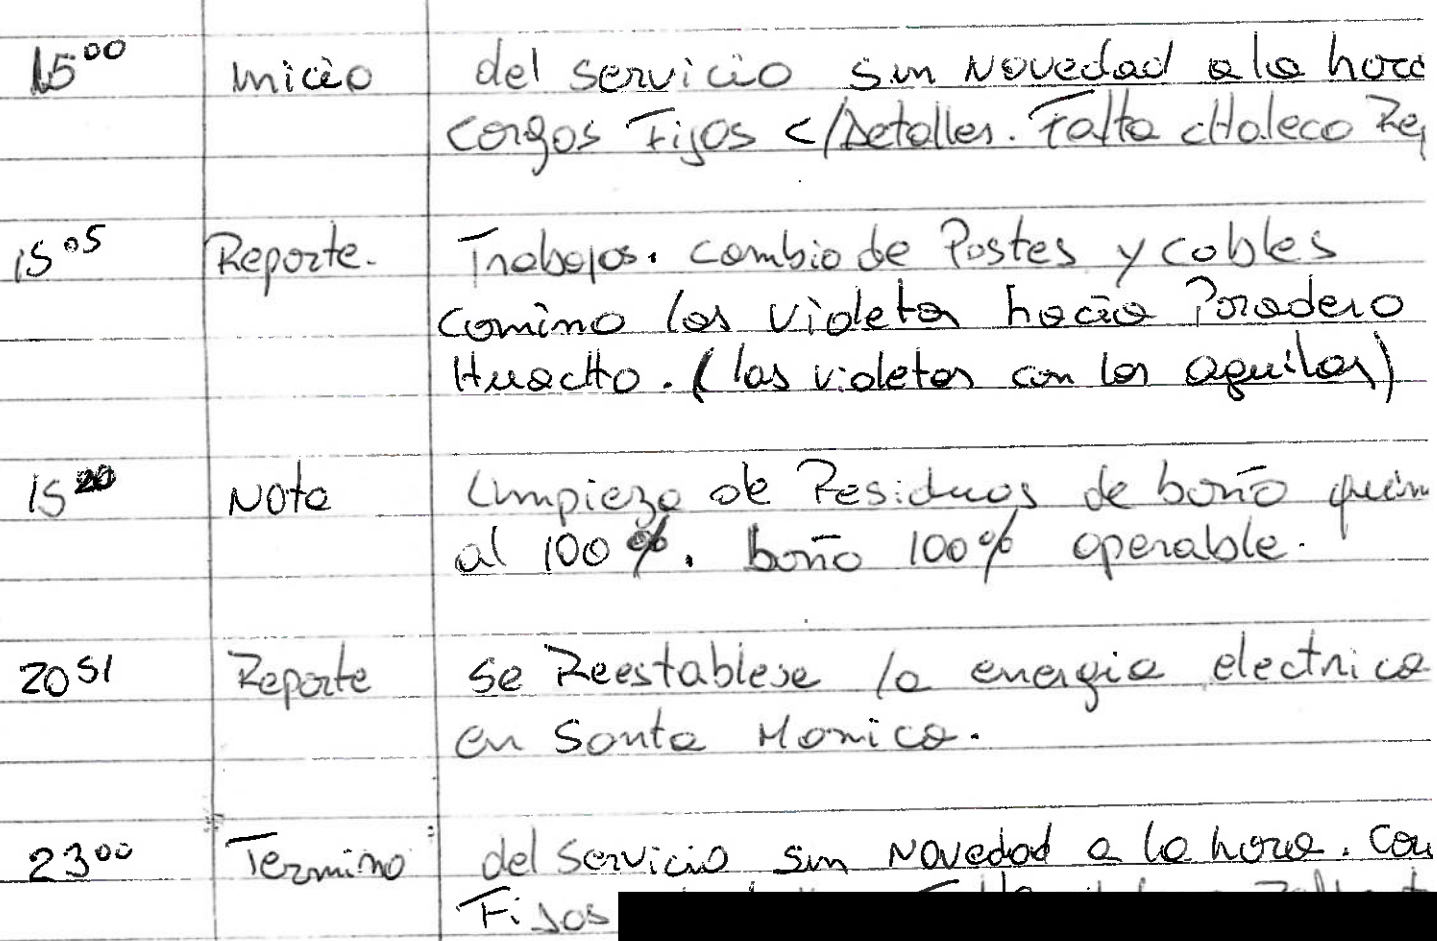 15⁰⁰ Inicio del servicio sin Novedad a la hora
Cargos Fijos c/Detalles. Falta cHaleco
15⁰⁵ Reporte. Trabajos. cambio de Postes y cables
camino las violetas hacia Paradero
HuacHo. (las violetas con las aguilas)
15²⁰ Nota Limpieza de Residuos de baño
al 100%. baño 100% operable.
20⁵¹ Reporte se Reestablese la energia electrica
en Santa Monica.
23⁰⁰ Termino del servicio sin Novedad a la hora.
Fijos